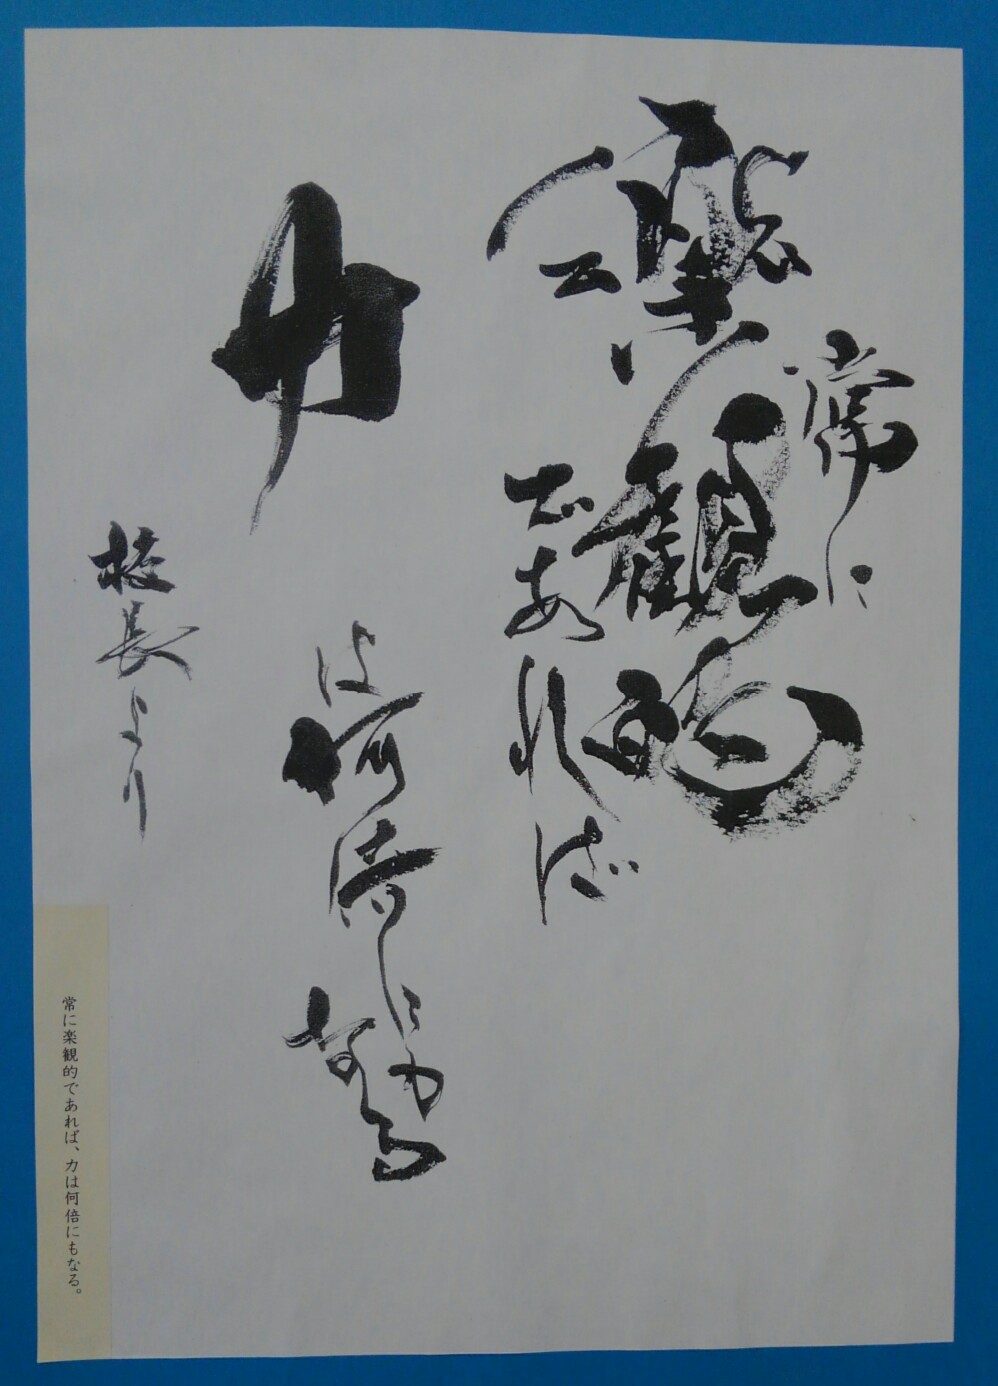 常に
樂観的
であれば
力
は何倍にも
なる
校長より
常に楽観的であれば、力は何倍にもなる。